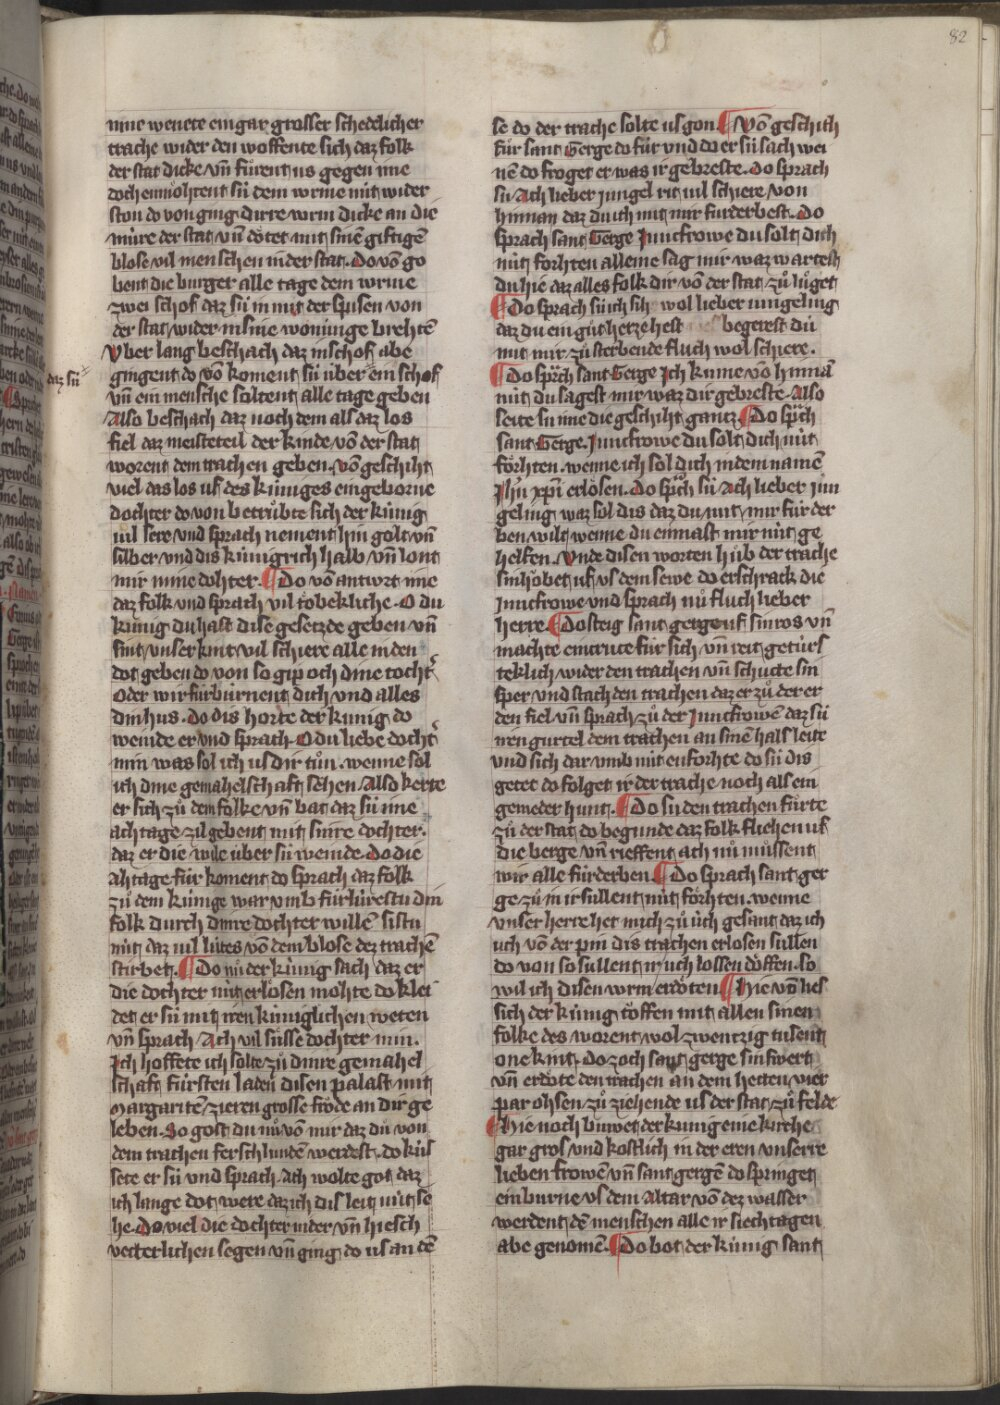 82
nine wenete ein gar grosser schedelicher
trache wider den woffente sich daz folk
der stat dicke vn̄ fůrent us gegen ime
doch enmöhtent sú dem wrme nút wider
ston do von ging dirre wrm dicke an die
mure der stat vn̄ dötet mit sinē giftigē
blose vil menschen in der stat. Do vō go
bent die burger alle tage dem wrme
zwei schof daz sú in mit der spisen von
der stat wider in sine wonunge brehtē
Vber lang beschach daz in schof abe
daz sú
gingent do vō koment sú úber ein schof
vn̄ ein mensche soltent alle tage geben
Also beschach daz noch dem als daz los
fiel daz meisteteil der kinde vō der stat
worent dem trachen geben. vō geschiht
viel das los uf des kúniges eingeborne
dochter do von betrůbte sich der kúnig
vil sere vnd sprach nement hin golt vn̄
silber vnd dis kúnigrich halb vn̄ lont
mir mine dohter. ¶ Do vō antwrt ime
daz folk vnd sprach vil tobekliche. O du
kúnig du hast dise gesetzde geben vn̄
sint vnser kint vil schiere alle in den
dot geben do von so gip och dine tocht᷑
oder wir fúrbúrnent dich vnd alles
din hus. Do dis horte der kúnig do
weinde er vnd sprach. O du liebe docht᷑
min was sol ich us dir tůn. wenne sol
ich dine gemahelschaft sehen. Also kerte
er sich zů dem folke vn̄ bat daz sú ime
ach tage zil gebent mit sinre dochter.
daz er die wile úber sú weinde. Do die
ah tage fúr koment do sprach daz folk
zů dem kúnige war vmb fúrlúrestu din
folk durch dinre dochter willē sistu
nút daz vil lútes vō dem blose dez trachē
stirbet. ¶ Do nů der kúnig sach daz er
die dochter nút erlösen mohte do klei
det er sú mit iren kúniglichen weten
vn̄ sprach Ach vil sússe dochter min.
Ich hoffete ich solte zů dinre gemahel
schaft fúrsten laden disen palast mit
margaritē zieren grosse fröde an dir ge
leben. So gost du nů vō mir daz du von
dem trachen ferschlunden werdest. do kús
sete er sú vnd sprach. Ach wolte got daz
ich lange dot were daz ich dis leit nút se
he. Do viel die dochter nider vn̄ hiesch
vetterlichen segen vn̄ ging do us an dē
se do der trache solte us gon. ¶ Vō geschich
fúr sant Gerge do fúr vnd do er sú sach wei
nē do froget er was ir gebreste. Do sprach
sú Ach lieber jungeling rit vil schiere von
hinnan daz du ich mit mir fúrderbest. Do
sprach sant Gerge Juncfrowe du solt dich
nút förhten alleine sag mir waz wartest
du hie daz alles folk dir vō der stat zů lůget
¶ Do sprach sú ich sih wol lieber jungeling
daz du ein gůt hertze hest begerest du
mit mir zů sterbende fluch wol schiere.
¶ Do sprach sant Gerge Ich kume vō hinnā
nút du sagest mir waz dir gebreste. Also
seite sú ime die geschiht gantz. ¶ Do sprach
sant Gerge. Juncfrowe du solt dich nút
förhten. wenne ich sol dich in dem namē
Jhū xp̄i erlösen. Do sprach sú Ach lieber jun
geling waz sol dis daz du mit mir fúr der
ben wilt wenne du einmalt mir nút ge
helfen. Vnde disen worten hůb der trache
sin höbet uf us dem sewe do erschrack die
Juncfrowe vnd sprach nů fluch lieber
herre. ¶ Do steig sant gerge uf sin ros vn̄
machte ein crúce fúr sich vn̄ reit getúrs
teklich wider den trachen vn̄ schutte sin
sper vnd stach den trachen daz er zů der er
den fiel vn̄ sprach zů der Juncfrowē daz sú
iren gúrtel dem trachen an sinē hals leite
vnd sich dar vmb nút enforhte do sú dis
getet do folget ir der trache noch als ein
gemeder hunt. ¶ Do sú den trachen fůrte
zů der stat do begunde daz folk fliehen uf
die berge vn̄ rieffent ach nů mússent
wir alle fúrderben. ¶ Do sprach sant ger
ge zů in ir sullent nút förhten. wenne
vnser herre het mich zů úch gesant daz ich
uch vō der pin dis trachen erlosen sullen
do von so sullent ir uch lossen döffen. so
wil ich disen wrm erdöten ¶ Hie vō lies
sich der kúnig töffen mit allen sinen
folke des worent wol zwentzig tusent
one kint. Do zoch sant gerge sin swert
vn̄ erdöte den trachen an dem hetten vier
par ohsen zů ziehende us der stat zů felde
¶ Hie noch buwet der kúnig eine kirche
gar gros vnd kostlich in der eren vnserre
lieben frowē vn̄ sant gergē do springet
ein burne vs dem Altar vō dez wasser
werdent dē menschen alle ir siechtagen
abe genomē. ¶ Do bot der kúnig sant